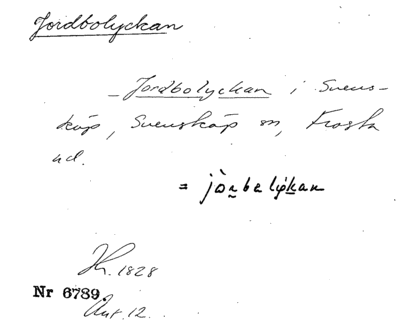 Jordbolyckan
– Jordbolyckan i Svens-
köp, Svensköp sn, Frosta
hd.
= jòrbelykan
H. 1828
Nr 6789
Ant. 12.